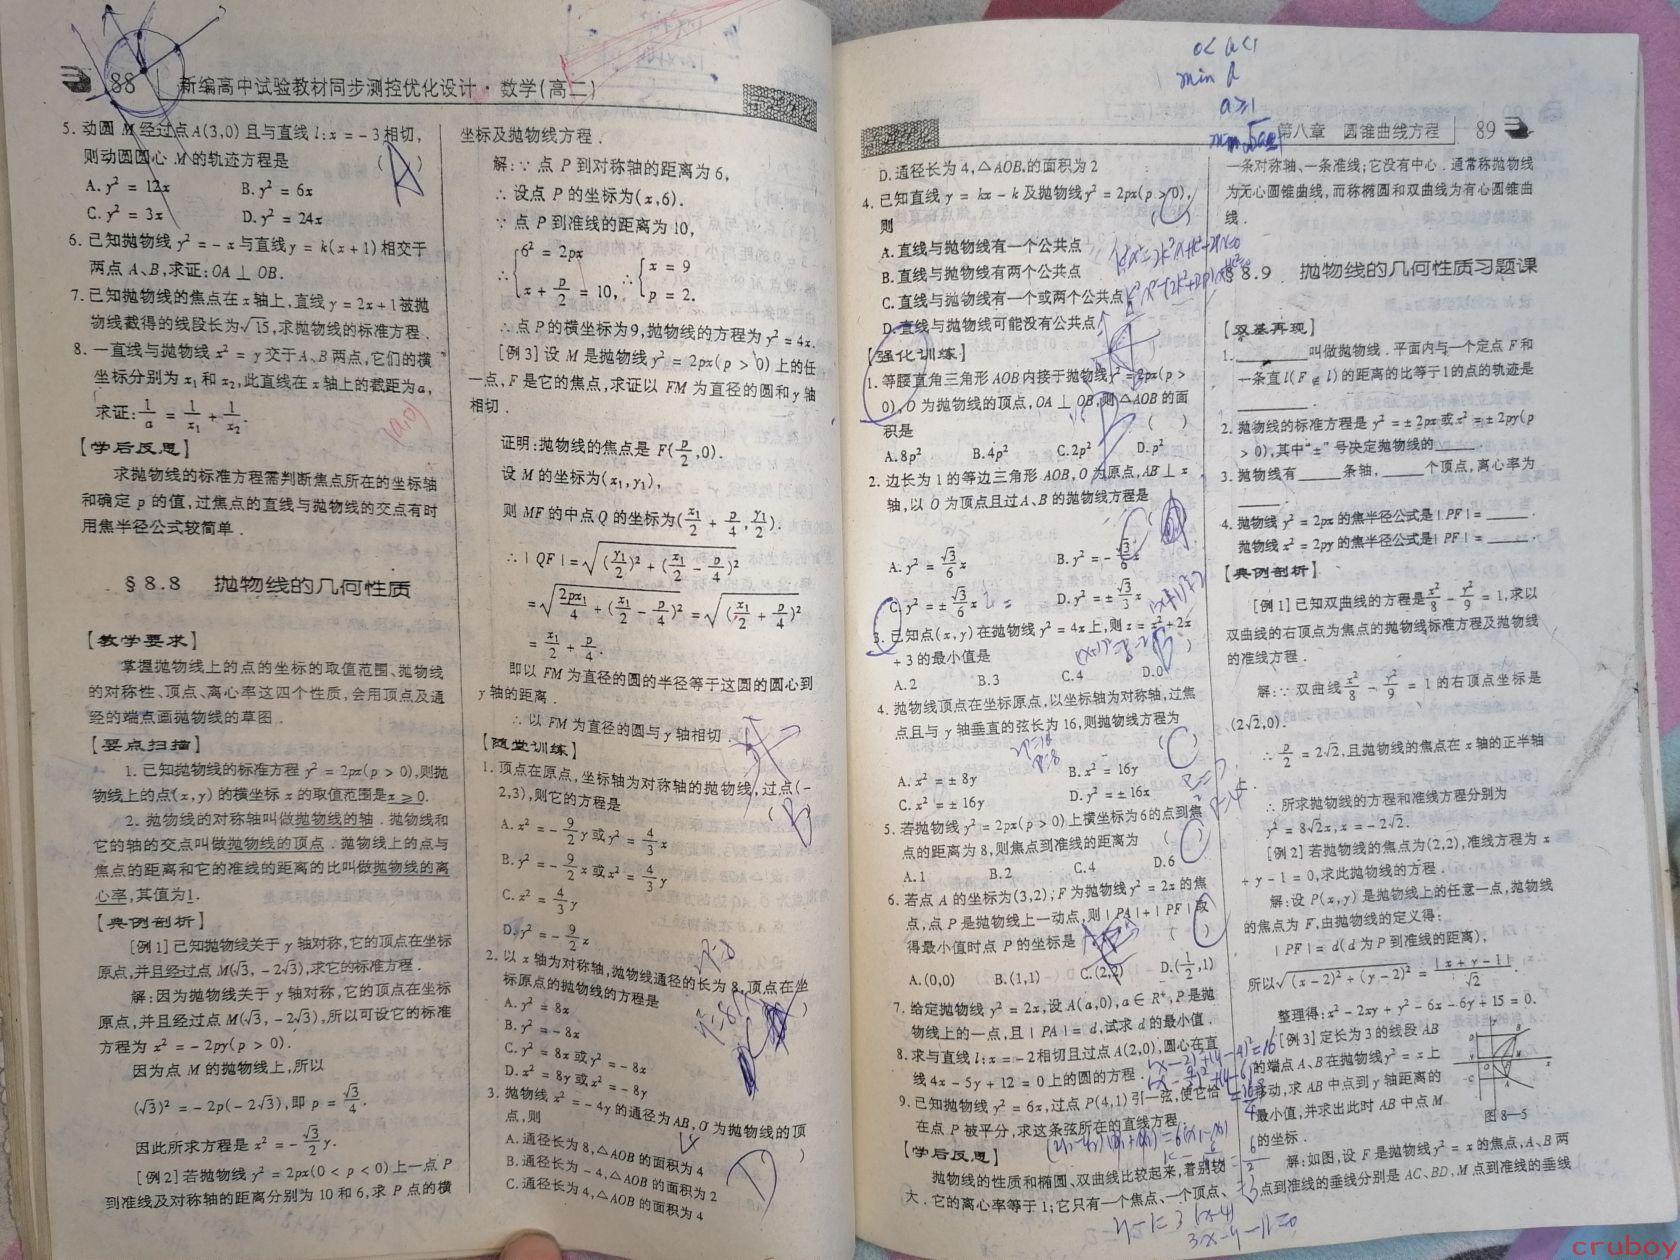 88 新编高中试验教材同步测控优化设计·数学(高二)
5. 动圆 M 经过点A(3,0) 且与直线 l:x = -3 相切,
则动圆圆心 M 的轨迹方程是 ( )
A. y² = 12x B. y² = 6x
C. y² = 3x D. y² = 24x
6. 已知抛物线 y² = -x 与直线 y = k(x+1) 相交于
两点 A、B,求证:OA ⊥ OB.
7. 已知抛物线的焦点在 x 轴上,直线 y = 2x+1 被抛
物线截得的线段长为√15,求抛物线的标准方程.
8. 一直线与抛物线 x² = y 交于A、B 两点,它们的横
坐标分别为 x₁ 和 x₂,此直线在 x 轴上的截距为a,
求证:1/a = 1/x₁ + 1/x₂.
(a,0)
【学后反思】
求抛物线的标准方程需判断焦点所在的坐标轴
和确定 p 的值,过焦点的直线与抛物线的交点有时
用焦半径公式较简单.
§8.8 抛物线的几何性质
【教学要求】
掌握抛物线上的点的坐标的取值范围、抛物线
的对称性、顶点、离心率这四个性质,会用顶点及通
经的端点画抛物线的草图.
【要点扫描】
1. 已知抛物线的标准方程 y² = 2px(p > 0),则抛
物线上的点(x,y) 的横坐标 x 的取值范围是x ≥ 0.
2. 抛物线的对称轴叫做抛物线的轴. 抛物线和
它的轴的交点叫做抛物线的顶点. 抛物线上的点与
焦点的距离和它的准线的距离的比叫做抛物线的离
心率,其值为1.
【典例剖析】
[例1] 已知抛物线关于 y 轴对称,它的顶点在坐标
原点,并且经过点 M(√3, -2√3),求它的标准方程.
解:因为抛物线关于 y 轴对称,它的顶点在坐标
原点,并且经过点 M(√3, -2√3),所以可设它的标准
方程为 x² = -2py(p > 0).
因为点 M 的抛物线上,所以
(√3)² = -2p(-2√3),即 p = √3/4.
因此所求方程是 x² = -√3/2 y.
[例2] 若抛物线 y² = 2px(0 < p < 0) 上一点 P
到准线及对称轴的距离分别为 10 和 6,求 P 点的横
坐标及抛物线方程.
解:∵ 点 P 到对称轴的距离为 6,
∴ 设点 P 的坐标为(x,6).
∵ 点 P 到准线的距离为 10,
∴ { 6² = 2px x + p/2 = 10, ∴ { x = 9 p = 2.
∴ 点 P 的横坐标为 9,抛物线的方程为 y² = 4x.
[例3] 设 M 是抛物线 y² = 2px(p > 0) 上的任
一点,F 是它的焦点,求证以 FM 为直径的圆和 y 轴
相切.
证明:抛物线的焦点是 F(p/2,0).
设 M 的坐标为(x₁,y₁),
则 MF 的中点 Q 的坐标为(x₁/2 + p/4, y₁/2).
∴ |QF| = √((y₁/2)² + (x₁/2 - p/4)²)
= √(2px₁/4 + (x₁/2 - p/4)²) = √((x₁/2 + p/4)²)
= x₁/2 + p/4.
即以 FM 为直径的圆的半径等于这圆的圆心到
y 轴的距离.
∴ 以 FM 为直径的圆与 y 轴相切.
【随堂训练】
1. 顶点在原点,坐标轴为对称轴的抛物线,过点(-
2,3),则它的方程是 ( )
A. x² = -9/2 y 或 y² = 4/3 x
B. y² = -9/2 x 或 x² = 4/3 y
C. x² = 4/3 y
D. y² = -9/2 x
2. 以 x 轴为对称轴,抛物线通径的长为 8,顶点在坐
标原点的抛物线的方程是 ( )
A. y² = 8x
B. y² = -8x
C. y² = 8x 或 y² = -8x
D. x² = 8y 或 x² = -8y
3. 抛物线 x² = -4y 的通径为 AB,O 为抛物线的顶
点,则 ( )
A. 通径长为 8,△AOB 的面积为 4
B. 通径长为 -4,△AOB 的面积为 2
C. 通径长为 4,△AOB 的面积为 4
0 < a < 1
min d
a ≥ 1
第八章 圆锥曲线方程 89
D. 通径长为 4,△AOB 的面积为 2
4. 已知直线 y = kx - k 及抛物线 y² = 2px(p > 0),
则 ( )
A. 直线与抛物线有一个公共点
B. 直线与抛物线有两个公共点
C. 直线与抛物线有一个或两个公共点
D. 直线与抛物线可能没有公共点
【强化训练】
1. 等腰直角三角形 AOB 内接于抛物线 y² = 2px(p >
0),O 为抛物线的顶点,OA ⊥ OB,则 △AOB 的面
积是 ( )
A. 8p² B. 4p² C. 2p² D. p²
2. 边长为 1 的等边三角形 AOB,O 为原点,AB ⊥ x
轴,以 O 为顶点且过 A、B 的抛物线方程是
A. y² = √3/6 x B. y² = -√3/3 x
C. y² = ±√3/6 x D. y² = ±√3/3 x
3. 已知点(x,y) 在抛物线 y² = 4x 上,则 z = x² + 2x
+ 3 的最小值是
A. 2 B. 3 C. 4 D. 0
4. 抛物线顶点在坐标原点,以坐标轴为对称轴,过焦
点且与 y 轴垂直的弦长为 16,则抛物线方程为
A. x² = ±8y B. x² = 16y
C. x² = ±16y D. y² = ±16x
5. 若抛物线 y² = 2px(p > 0) 上横坐标为 6 的点到焦
点的距离为 8,则焦点到准线的距离为
A. 1 B. 2 C. 4 D. 6
6. 若点 A 的坐标为(3,2);F 为抛物线 y² = 2x 的焦
点,点 P 是抛物线上一动点,则 |PA| + |PF| 取
得最小值时点 P 的坐标是 ( )
A. (0,0) B. (1,1) C. (2,2) D. (1/2,1)
7. 给定抛物线 y² = 2x,设 A(a,0),a ∈ R⁺,P 是抛
物线上的一点,且 |PA| = d,试求 d 的最小值.
8. 求与直线 l:x = -2 相切且过点 A(2,0),圆心在直
线 4x - 5y + 12 = 0 上的圆的方程.
9. 已知抛物线 y² = 6x,过点 P(4,1) 引一弦,使它恰
在点 P 被平分,求这条弦所在的直线方程.
【学后反思】
抛物线的性质和椭圆、双曲线比较起来,差别较
大. 它的离心率等于 1;它只有一个焦点、一个顶点、
y-1=3(x-4)
3x-y-11=0
一条对称轴、一条准线;它没有中心. 通常称抛物线
为无心圆锥曲线,而称椭圆和双曲线为有心圆锥曲
线.
§8.9 抛物线的几何性质习题课
【双基再现】
1. ______叫做抛物线. 平面内与一个定点 F 和
一条直 l(F ∉ l) 的距离的比等于1的点的轨迹是
______.
2. 抛物线的标准方程是 y² = ±2px 或 x² = ±2py(p
> 0),其中“±”号决定抛物线的______.
3. 抛物线有______条轴,______个顶点,离心率为
______.
4. 抛物线 y² = 2px 的焦半径公式是 |PF| = ______.
抛物线 x² = 2py 的焦半径公式是 |PF| = ______.
【典例剖析】
[例1] 已知双曲线的方程是 x²/8 - y²/9 = 1,求以
双曲线的右顶点为焦点的抛物线标准方程及抛物线
的准线方程.
解:∵ 双曲线 x²/8 - y²/9 = 1 的右顶点坐标是
(2√2,0).
∴ p/2 = 2√2,且抛物线的焦点在 x 轴的正半轴
.
∴ 所求抛物线的方程和准线方程分别为
y² = 8√2x, x = -2√2.
[例2] 若抛物线的焦点为(2,2),准线方程为 x
+ y - 1 = 0,求此抛物线的方程.
解:设 P(x,y) 是抛物线上的任意一点,抛物线
的焦点为 F,由抛物线的定义得:
|PF| = d(d 为 P 到准线的距离),
所以√((x-2)² + (y-2)²) = |x + y - 1|/√2.
整理得:x² - 2xy + y² - 6x - 6y + 15 = 0.
[例3] 定长为 3 的线段 AB
的端点 A、B 在抛物线 y² = x 上
移动,求 AB 中点到 y 轴距离的
最小值,并求出此时 AB 中点 M
的坐标.
图 8-5
解:如图,设 F 是抛物线 y² = x 的焦点,A、B 两
点到准线的垂线分别是 AC、BD,M 点到准线的垂线
cruboy